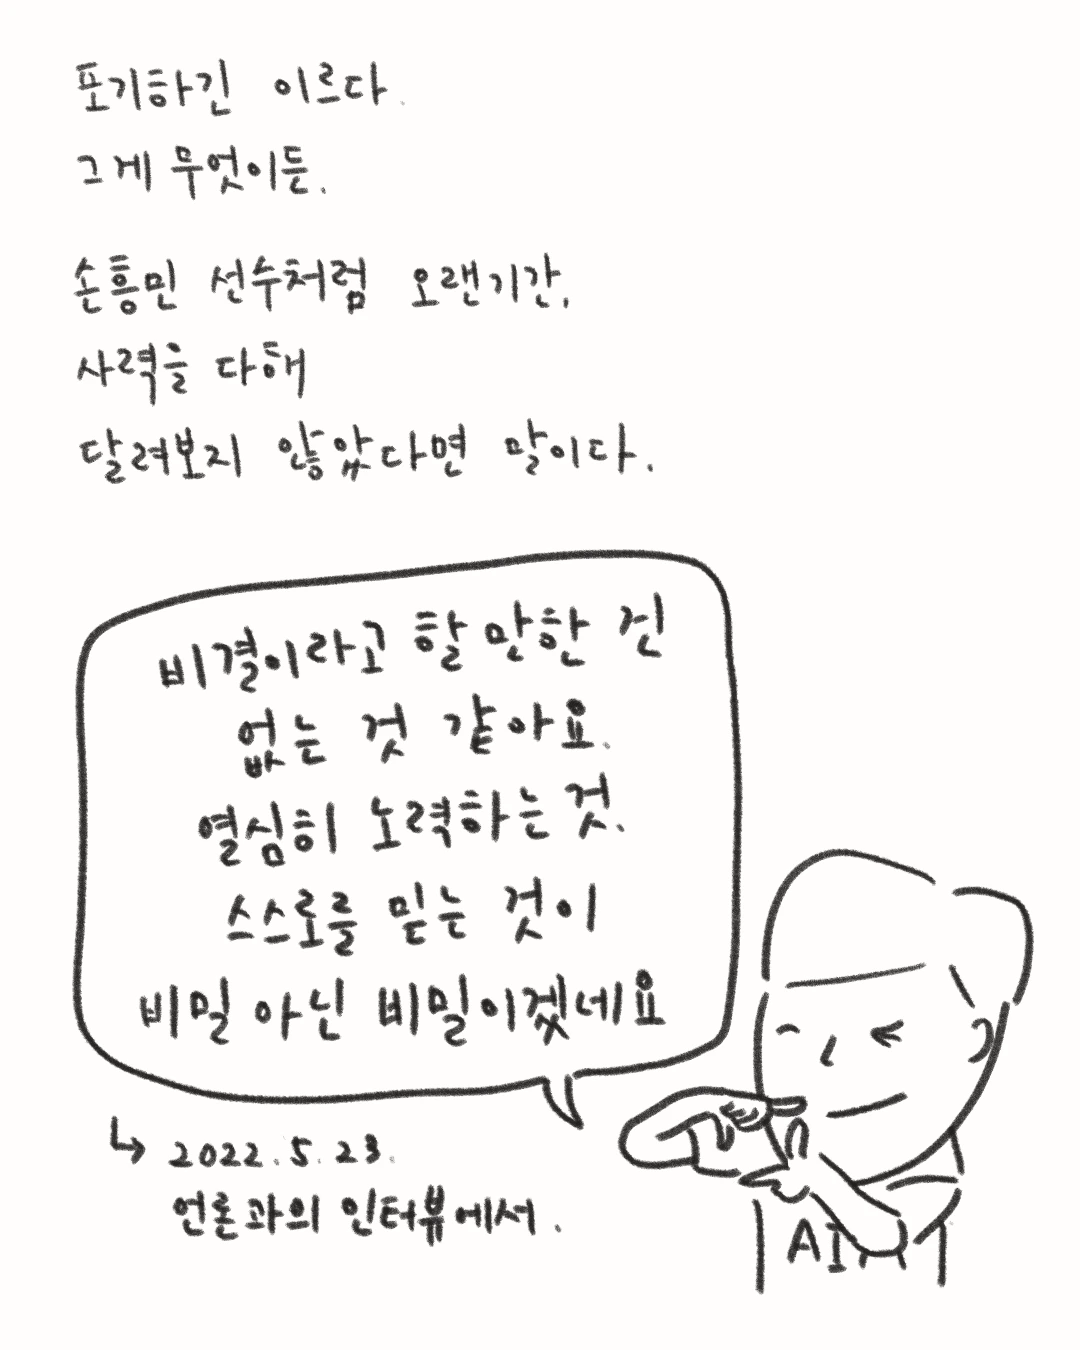 포기하긴 이르다.
그게 무엇이든.
손흥민 선수처럼 오랜기간.
사력을 다해
달려보지 않았다면 말이다.
비결이라고 할 만한 건
없는 것 같아요.
열심히 노력하는 것.
스스로를 믿는 것이
비밀 아닌 비밀이겠네요
↳ 2022.5.23.
언론과의 인터뷰에서.
AI